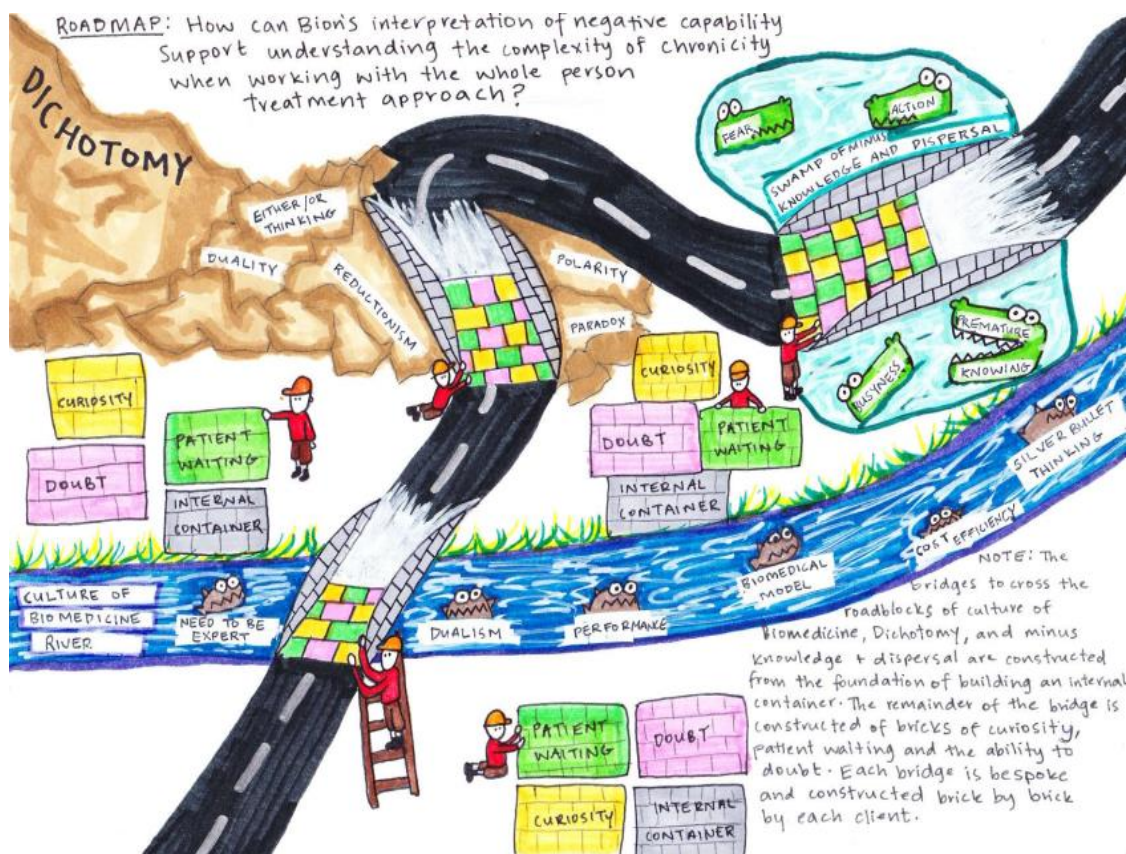 ROADMAP: How can Bion's interpretation of negative capability
Support understanding the complexity of chronicity
when working with the whole person
treatment approach?
DICHOTOMY
EITHER/OR
THINKING
DUALITY
REDUCTIONISM
POLARITY
PARADOX
FEAR
ACTION
SWAMP OF MINUS
KNOWLEDGE AND DISPERSAL
PREMATURE
KNOWING
BUSYNESS
CURIOSITY
DOUBT
PATIENT
WAITING
INTERNAL
CONTAINER
CURIOSITY
DOUBT
PATIENT
WAITING
INTERNAL
CONTAINER
CULTURE OF
BIOMEDICINE
RIVER
NEED TO BE
EXPERT
DUALISM
PERFORMANCE
BIOMEDICAL
MODEL
COST EFFICIENCY
SILVER BULLET
THINKING
PATIENT
WAITING
DOUBT
CURIOSITY
INTERNAL
CONTAINER
NOTE: The
bridges to cross the
roadblocks of culture of
Biomedicine, Dichotomy, and minus
Knowledge + dispersal are constructed
from the foundation of building an internal
container. The remainder of the bridge is
constructed of bricks of curiosity,
patient waiting and the ability to
doubt. Each bridge is bespoke
and constructed brick by brick
by each client.